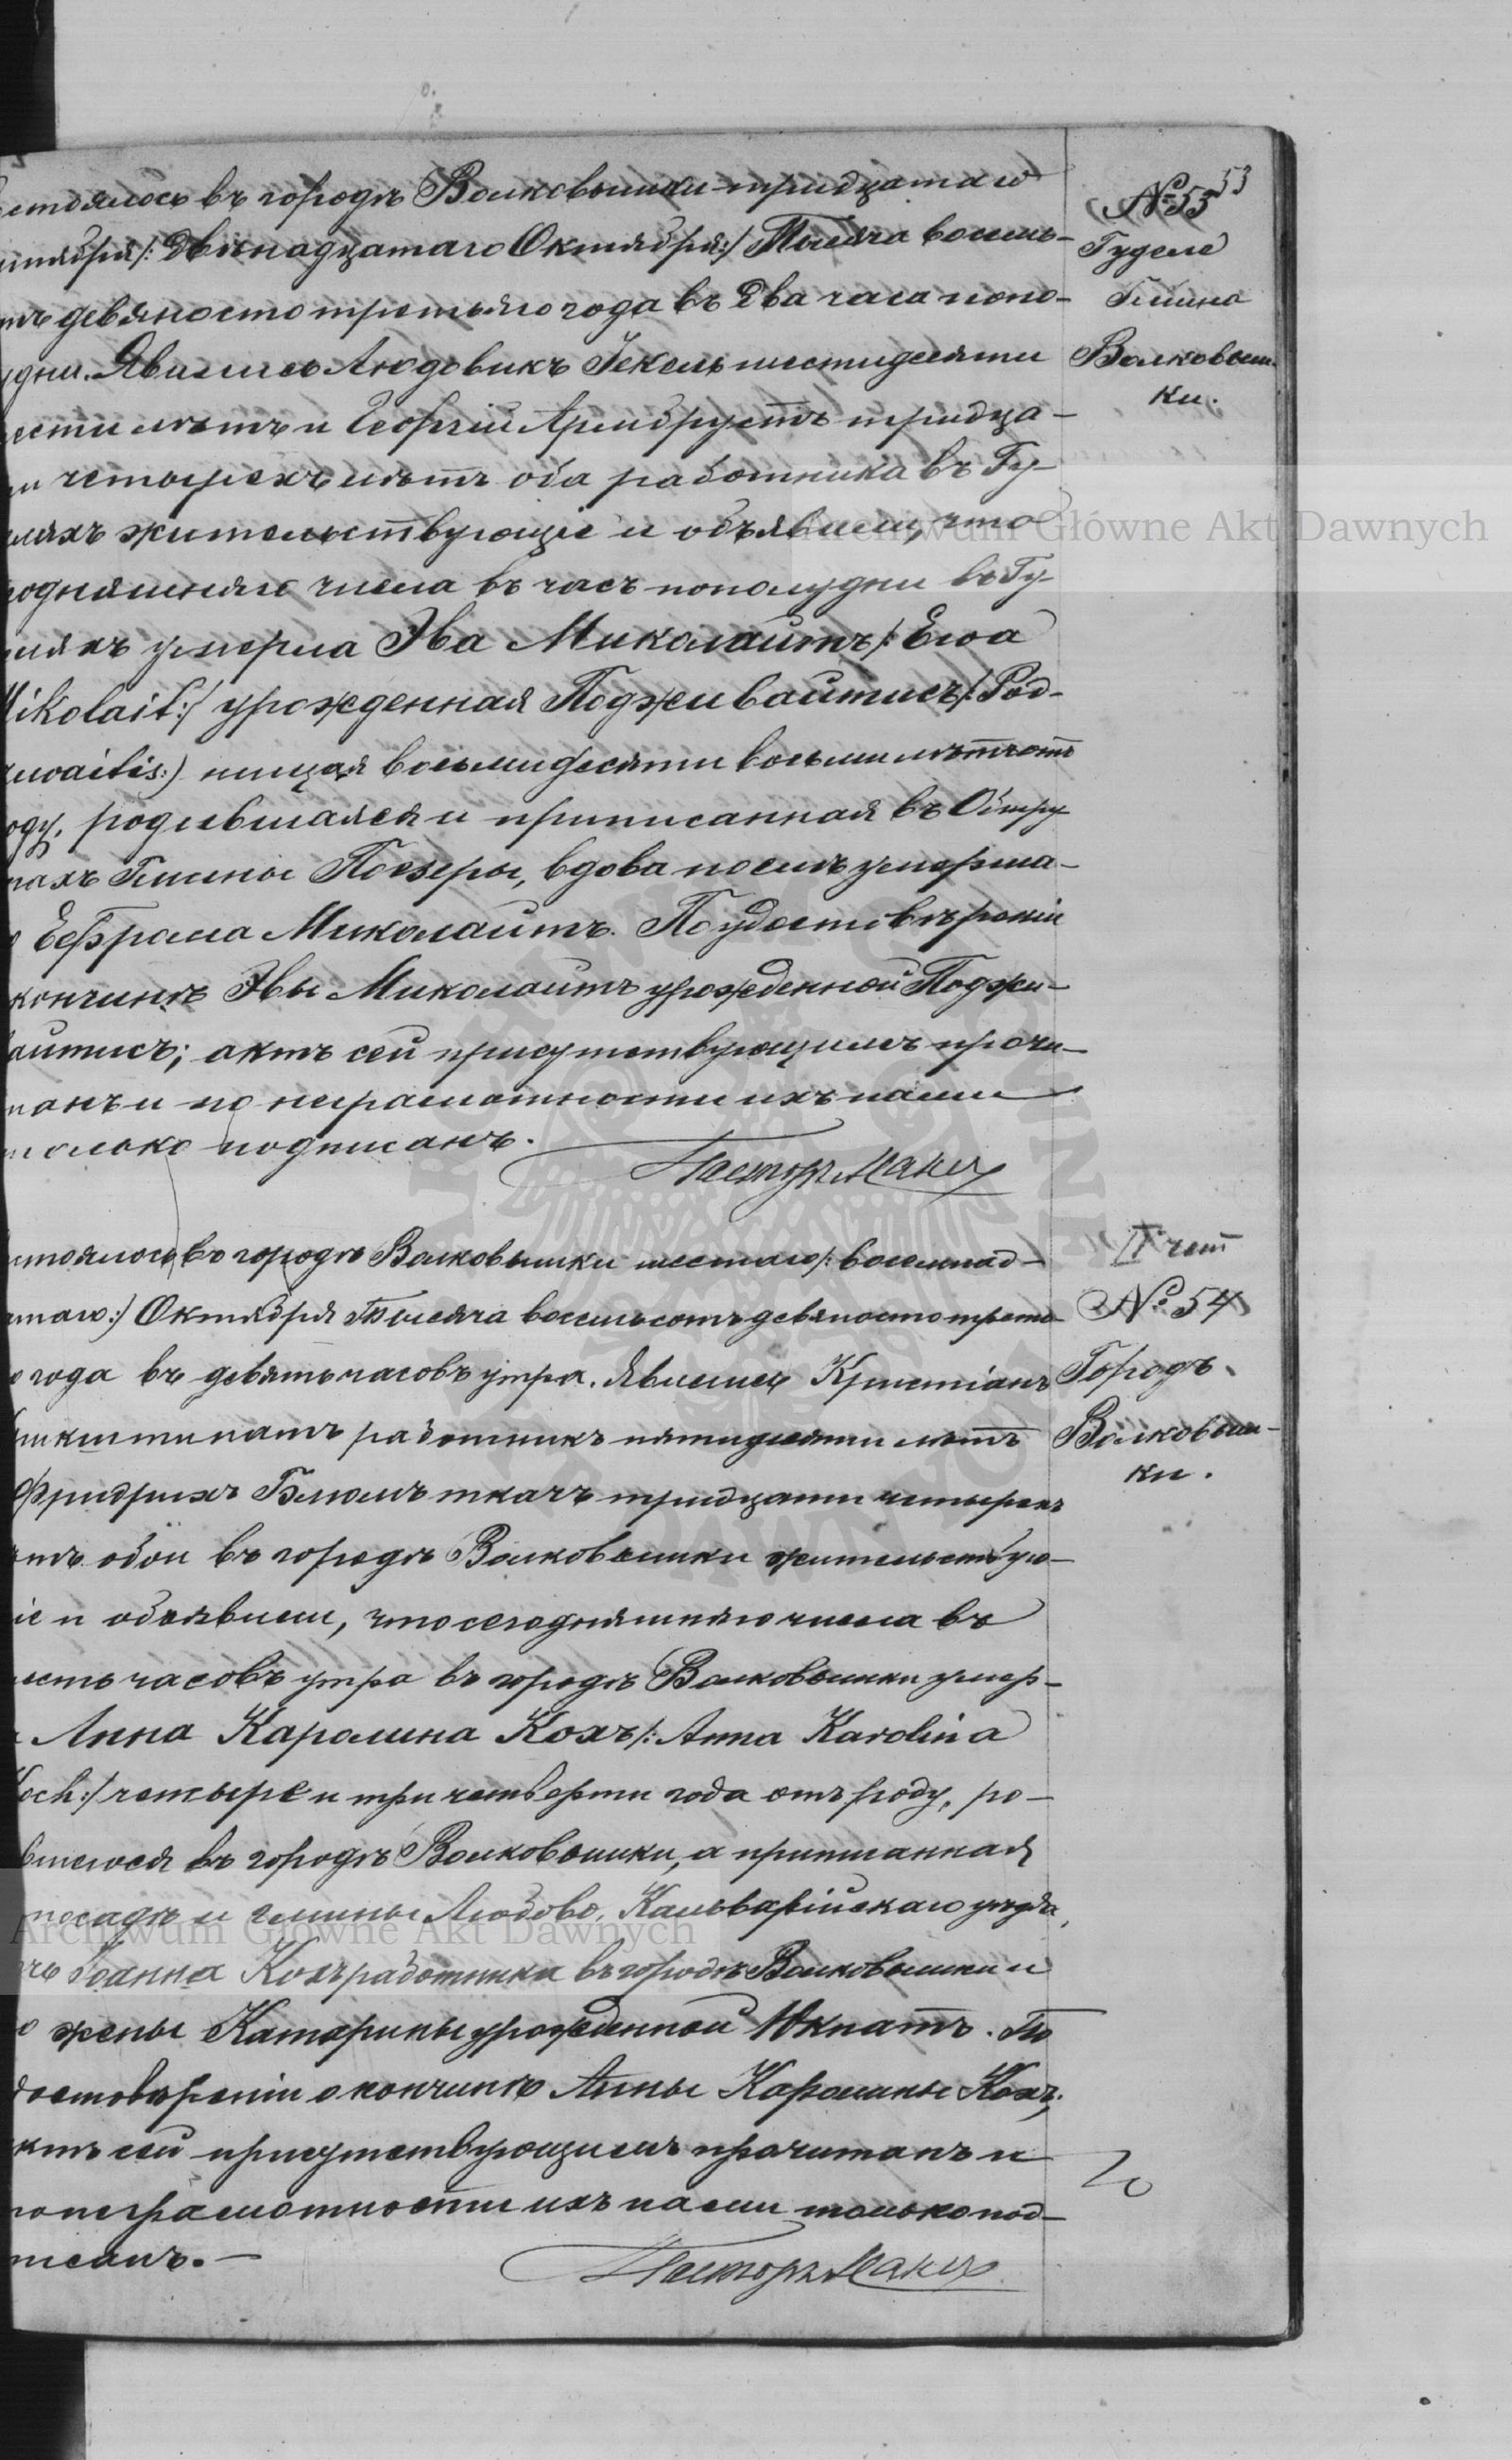 53
№ 53
Гуделе
Гмина
Волковыш-
ки.
стоялось въ городѣ Волковышки тридцатаго
нтября/: двѣнадцатаго Октября:/ Тысяча восемь-
тъ девяносто третьяго года въ два часа попо-
удни. Явились Людовикъ Гекель шестидесяти
ести лѣтъ и Георгій Армбрустъ тридца-
ти четырехъ лѣтъ оба работника въ Гу-
еляхъ жительствующіе и объявили, что
годняшняго числа въ часъ пополудни въ Гу-
еляхъ умерла Эва Миколаитъ/: Ewa
Mikolait:/ урожденная Подживайтисъ/: Pod-
ziwaitis:) нищая восьмидесяти восьми лѣтъ отъ
оду, родившаяся и приписанная въ
нахъ Гмины Поезеры, вдова послѣ умерша-
о Ефраима Миколаитъ. По удостовѣреніи
кончинѣ Эвы Миколаитъ урожденной Поджи-
айтисъ; актъ сей присутствующимъ прочи-
танъ и по неграмотности ихъ нами
только подписанъ.
Пасторъ
II чет
№ 54
Городъ
Волковыш-
ки.
стоялось въ городѣ Волковышки шестаго/: восемнад-
атаго:/ Октября Тысяча восемьсотъ девяносто треть-
о года въ девять часовъ утра. Явились Кристіанъ
работникъ пятидесяти лѣтъ
Фридрихъ Блюмъ ткачъ тридцати четырехъ
ѣтъ оба въ городѣ Волковышки жительствую-
іе и объявили, что сегодняшняго числа въ
есть часовъ утра въ городѣ Волковышки умер-
Анна Каролина Кохъ/: Anna Karolina
Koch:/ четыре и три четверти года отъ роду, ро-
вшаяся въ городѣ Волковышки, а приписанная
посадѣ и гмины Людово, Кальварійскаго уѣзда,
чь Іоанна Кохъ работника въ городѣ Волковышки и
о жены Катерины урожденной Юкнатъ. По
достовѣреніи о кончинѣ Анны Каролины Кохъ;
ктъ сей присутствующимъ прочитанъ и
по неграмотности ихъ нами только под-
писанъ.—
Пасторъ
Archiwum Główne Akt Dawnych
Archiwum Główne Akt Dawnych